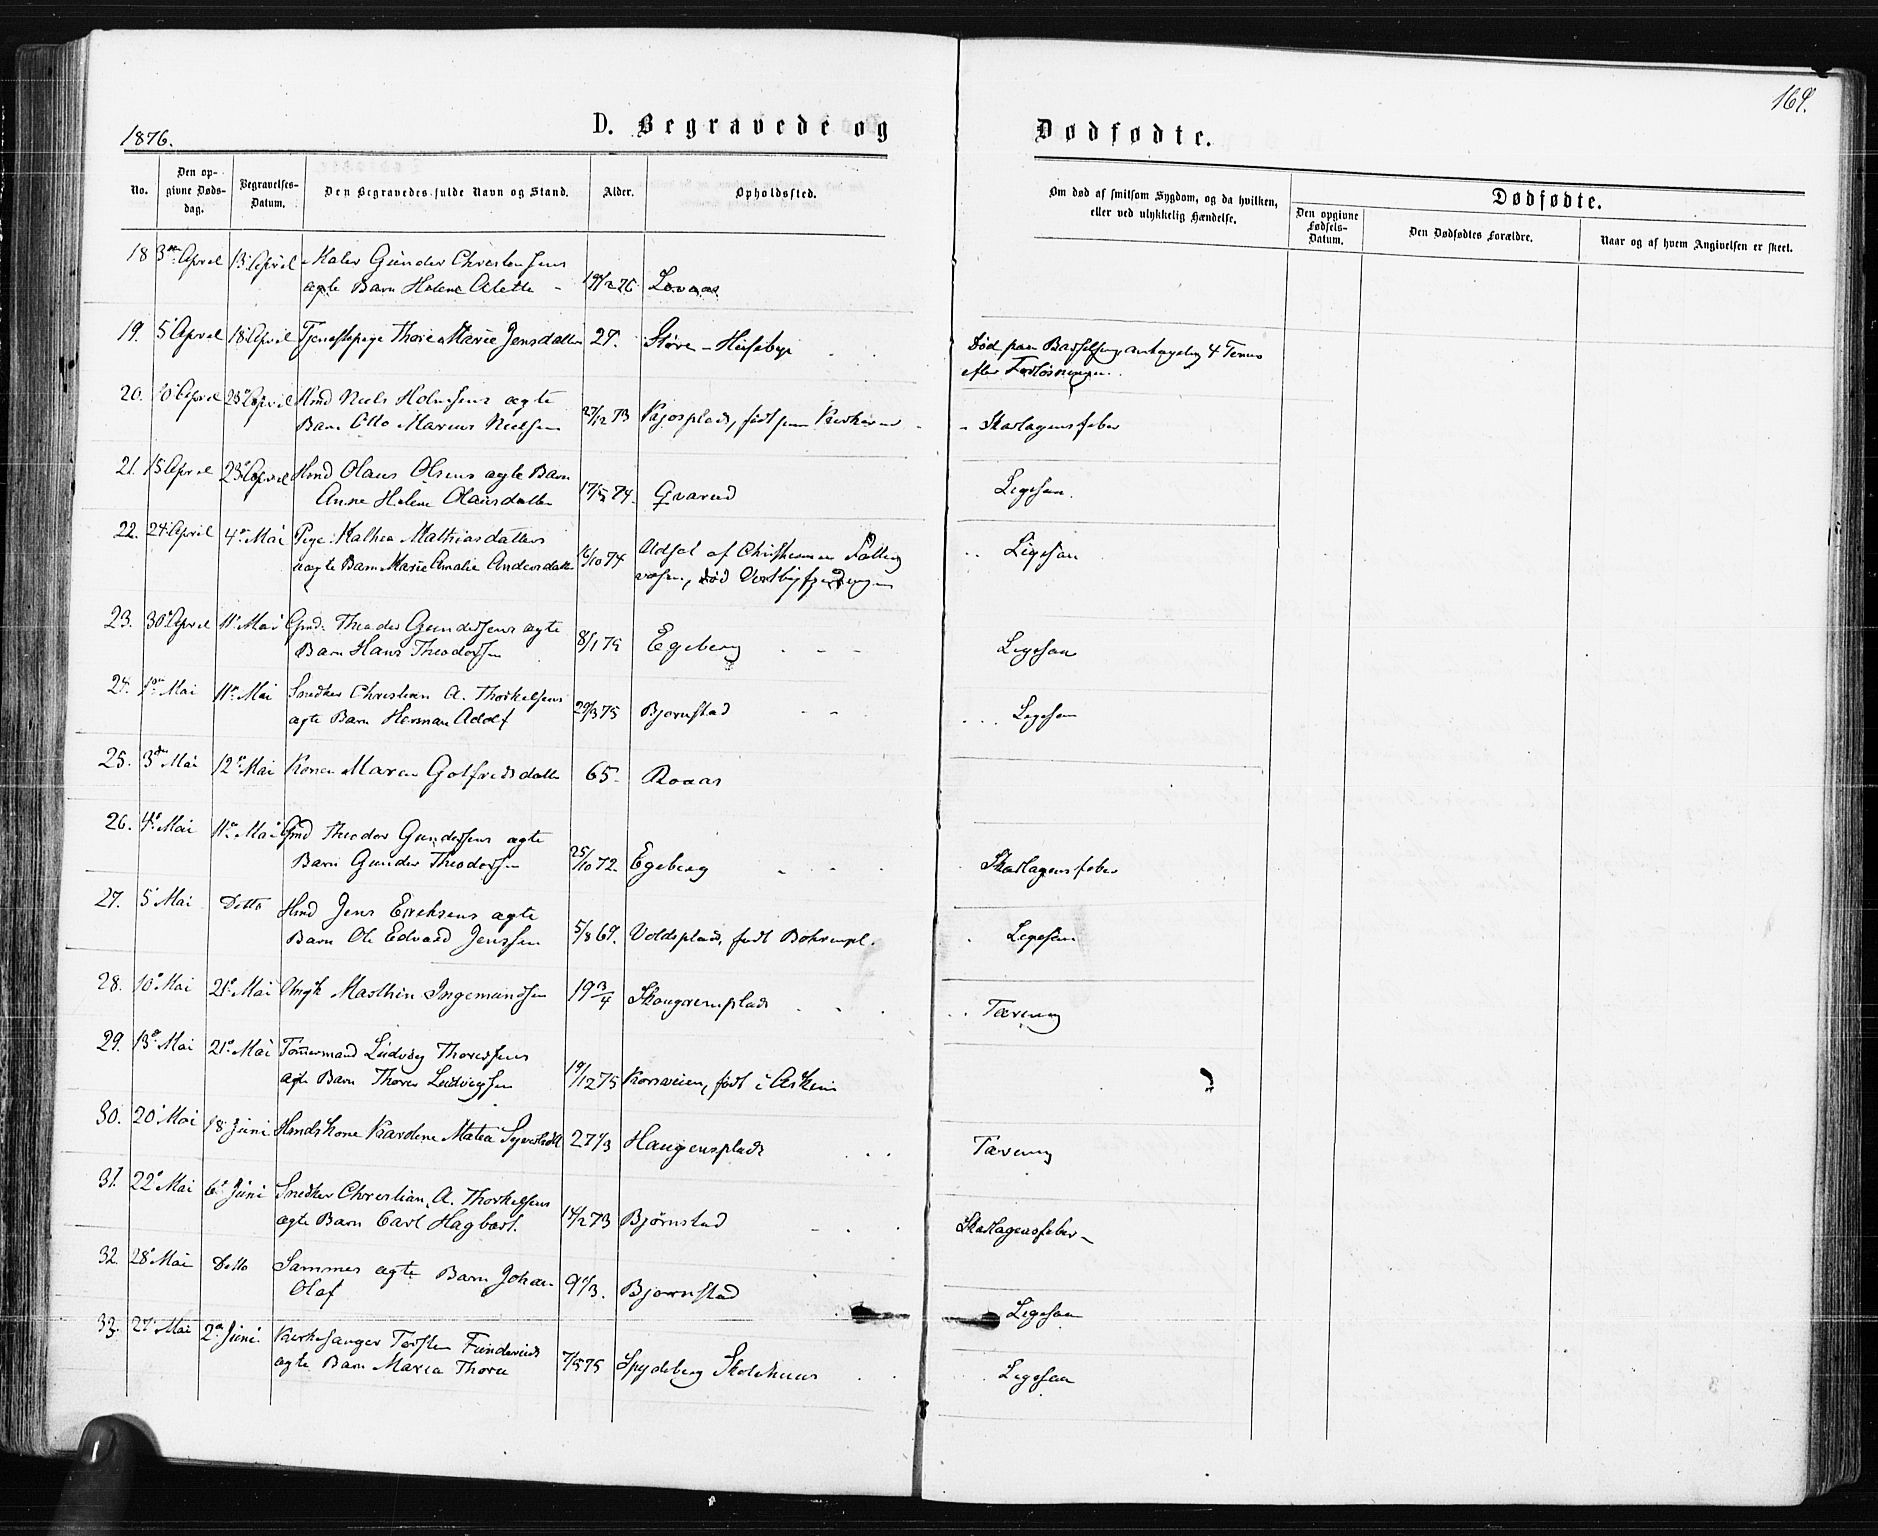 169.
1876.
D. Begravede og Dødfødte.
No.
Den op-
givne Døds-
dag.
Begravelses-
Datum.
Den Begravedes fulde Navn og Stand.
Alder.
Opholdssted.
Om død af smitsom Sygdom, og da hvilken,
eller ved ulykkelig Hændelse.
Dødfødte.
Den opgivne
Fødsels-
Datum.
Den Dødfødtes Forældre.
Naar og af hvem Angivelsen er skeet.
18 3die April 13 April Maler Gunder Christensens
ægte Barn Helene Alette
19. 5 April 18 April Tjenestepige Thorine Marie Jensdatter 27. Støre-Huseby
Død paa Barselseng 4 Timer
efter Forløsningen.
20. April 23 April Hmd Niels Holmsens ægte
Barn Otto Marius Nielsen 27/12 73 født Skarlagensfeber
21. 15 April 23 April Hmd Olaus Olsens ægte Barn
Anne Helene Olausdatter 17/5 74. Qvarud Ligesaa.
22. 24 April 4de Mai Pige Kathea Mathiasdatters
uægte Barn Marie Amalie Andersdatter 6/10 74 Udsat af Christiania Fattig
væsen, død Ligesaa
23. 30 April 11 Mai Gmd. Theodor Gundersens ægte
Barn Hans Theodorsen 8/1 75 Egeberg Ligesaa
24. 1ste Mai 11te Mai Snedker Christian A. Thorkelsens
ægte Barn Herman Adolf 29/3 75 Bjørnstad Ligesaa
25. 3die Mai 12te Mai Konen Maren Gotfredsdatter 65. Roaas
26. 4de Mai 11te Mai Gmd Theodor Gundersens ægte
Barn Gunder Theodorsen 25/10 72. Egeberg Skarlagensfeber
27. 5 Mai Ditto Hmd Jens Ereksens ægte
Barn Ole Edvard Jenssen 5/8 69. Voldsplads, født Ligesaa
28. 10 Mai 21de Mai Ungk Masthin Ingemundsen 19 3/4 Skougremplads Tæring
29. 13de Mai 21de Mai Tømmermand Ludvig Thoresens
ægte Barn Thorer Ludvigsen 19/12 75 Korsveien, født i Askim
30. 20 Mai 18 Juni Huusmandskone Karoline Matea 27 1/3 Haugensplads Tæring
31. 22 Mai 6 Juni Snedker Christian A. Thorkelsens
ægte Barn Carl Hagbart. 14/2 73 Bjørnstad Skarlagensfeber
32. 28 Mai Ditto Sammes ægte Barn Johan
Olaf 9 1/3. Bjørnstad Ligesaa
33. 27 Mai 2den Juni. Kirkesanger Torsten Funderuds
ægte Barn Maria Thora 7/5 75 Spydeberg Skolehuus Ligesaa